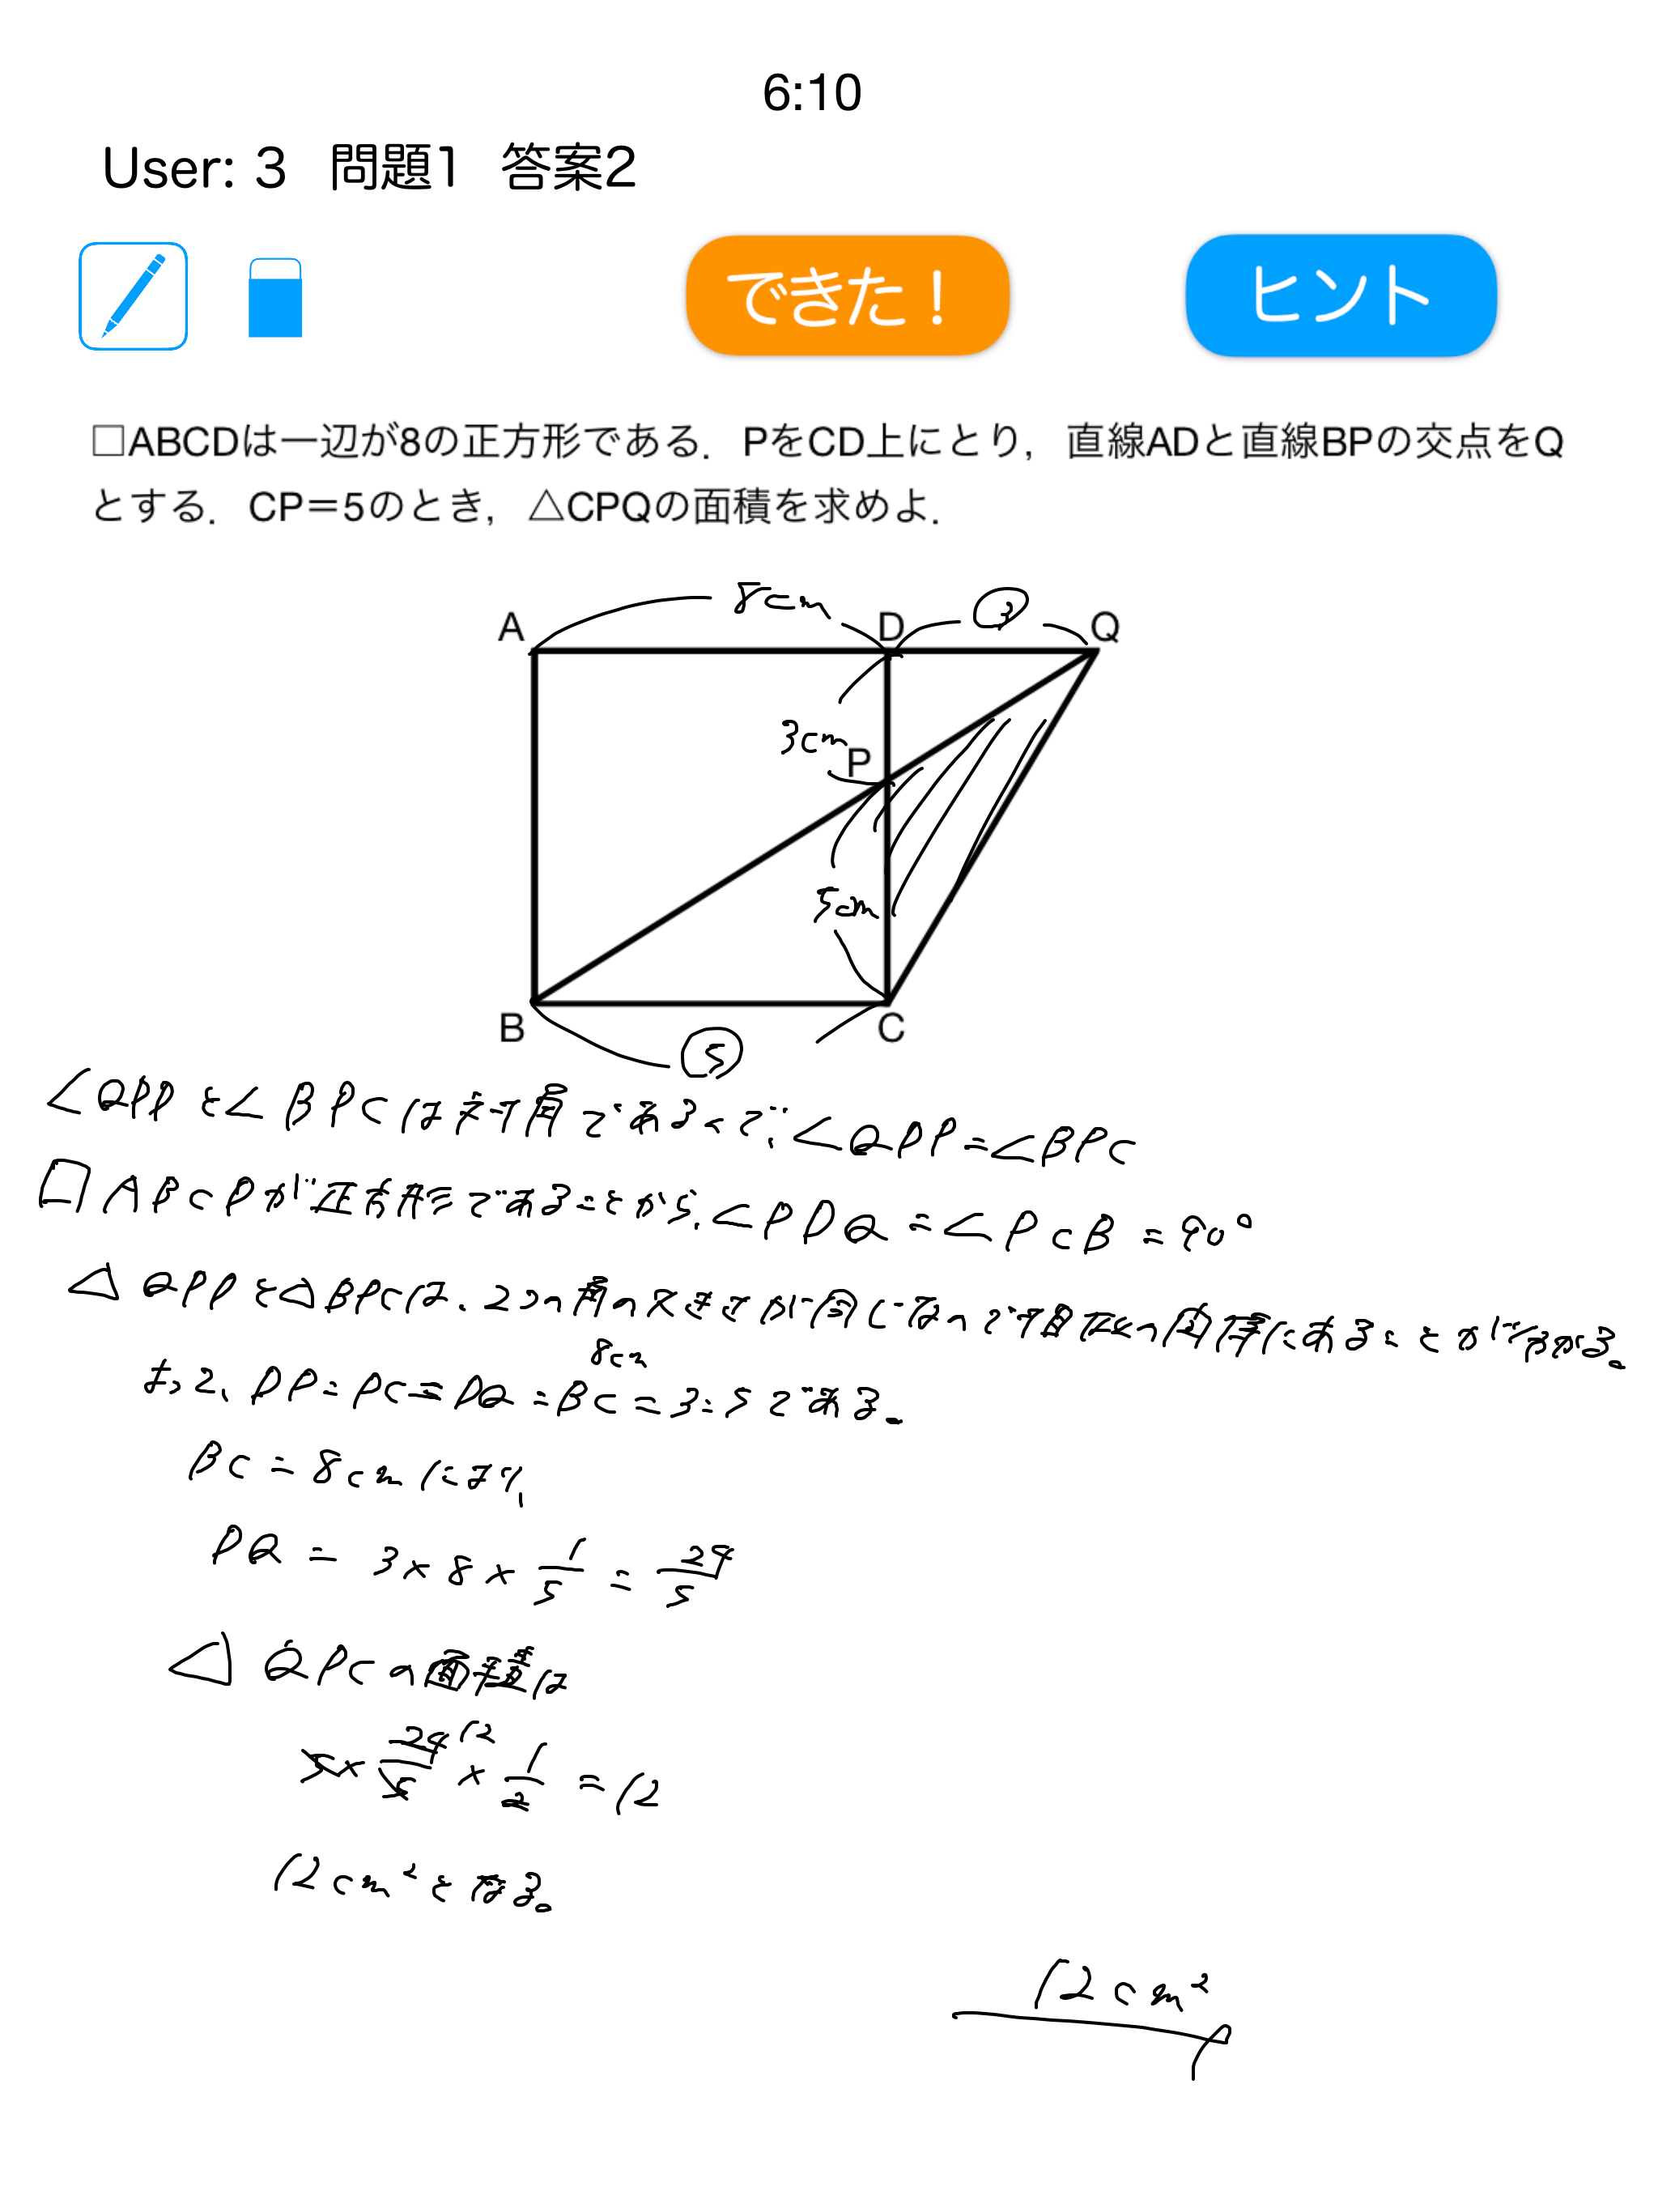 6:10
User: 3 問題1 答案2
できた！ ヒント
□ABCDは一辺が8の正方形である．PをCD上にとり，直線ADと直線BPの交点をQ
とする．CP＝5のとき，△CPQの面積を求めよ．
8cm ③
A D Q
3cm
P
5cm
B C
⑤
∠QPDと∠BPCは対角であるので、∠QPD=∠BPC
□ABCDが正方形であることから、∠PDQ=∠PCB=90°
△QPDと△BPCは、2つの角の大きさが同じなので相似の関係にあることがわかる。
よって、DP:PC=DQ:BC=3:5である。
8cm
BC=8cmにより、
DQ = 3×8×1/5 = 24/5
△QPCの面積は
5×24/5×1/2=12
12
12cm²となる。
12cm²